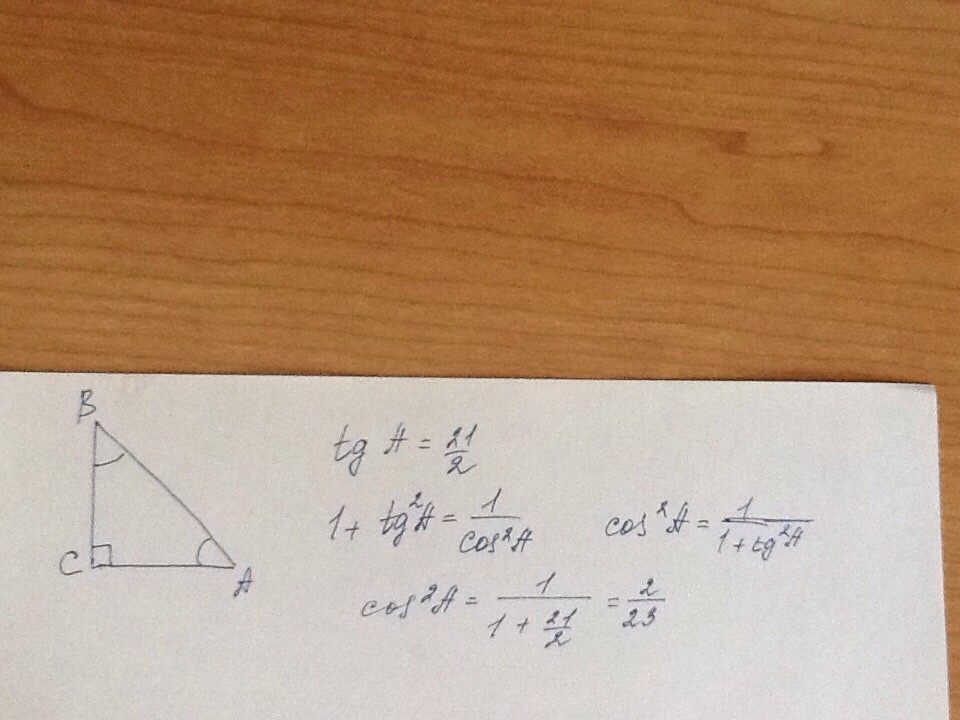 B
tg A = 21/2
1 + tg²A = 1/cos²A    cos²A = 1/(1 + tg²A)
C
A
cos²A = 1/(1 + 21/2) = 2/23